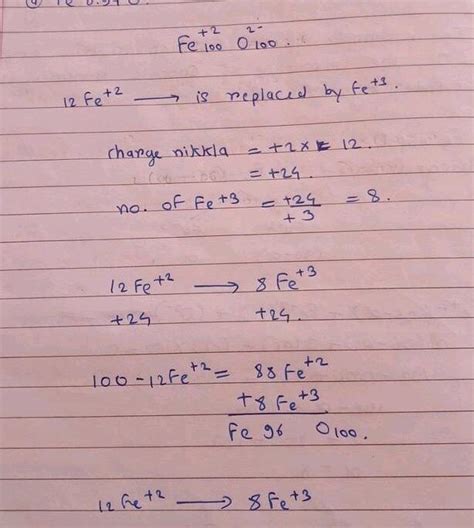 Fe⁺²₁₀₀ O²⁻₁₀₀.
12Fe⁺² ⟶ is replaced by Fe⁺³.
charge nikkla = +2 x 12.
= +24.
no. of Fe⁺³ = +24/+3 = 8.
12Fe⁺² ⟶ 8Fe⁺³
+24 +24.
100 - 12Fe⁺² = 88Fe⁺²
+8Fe⁺³
Fe 96 O₁₀₀.
12Fe⁺² ⟶ 8Fe⁺³